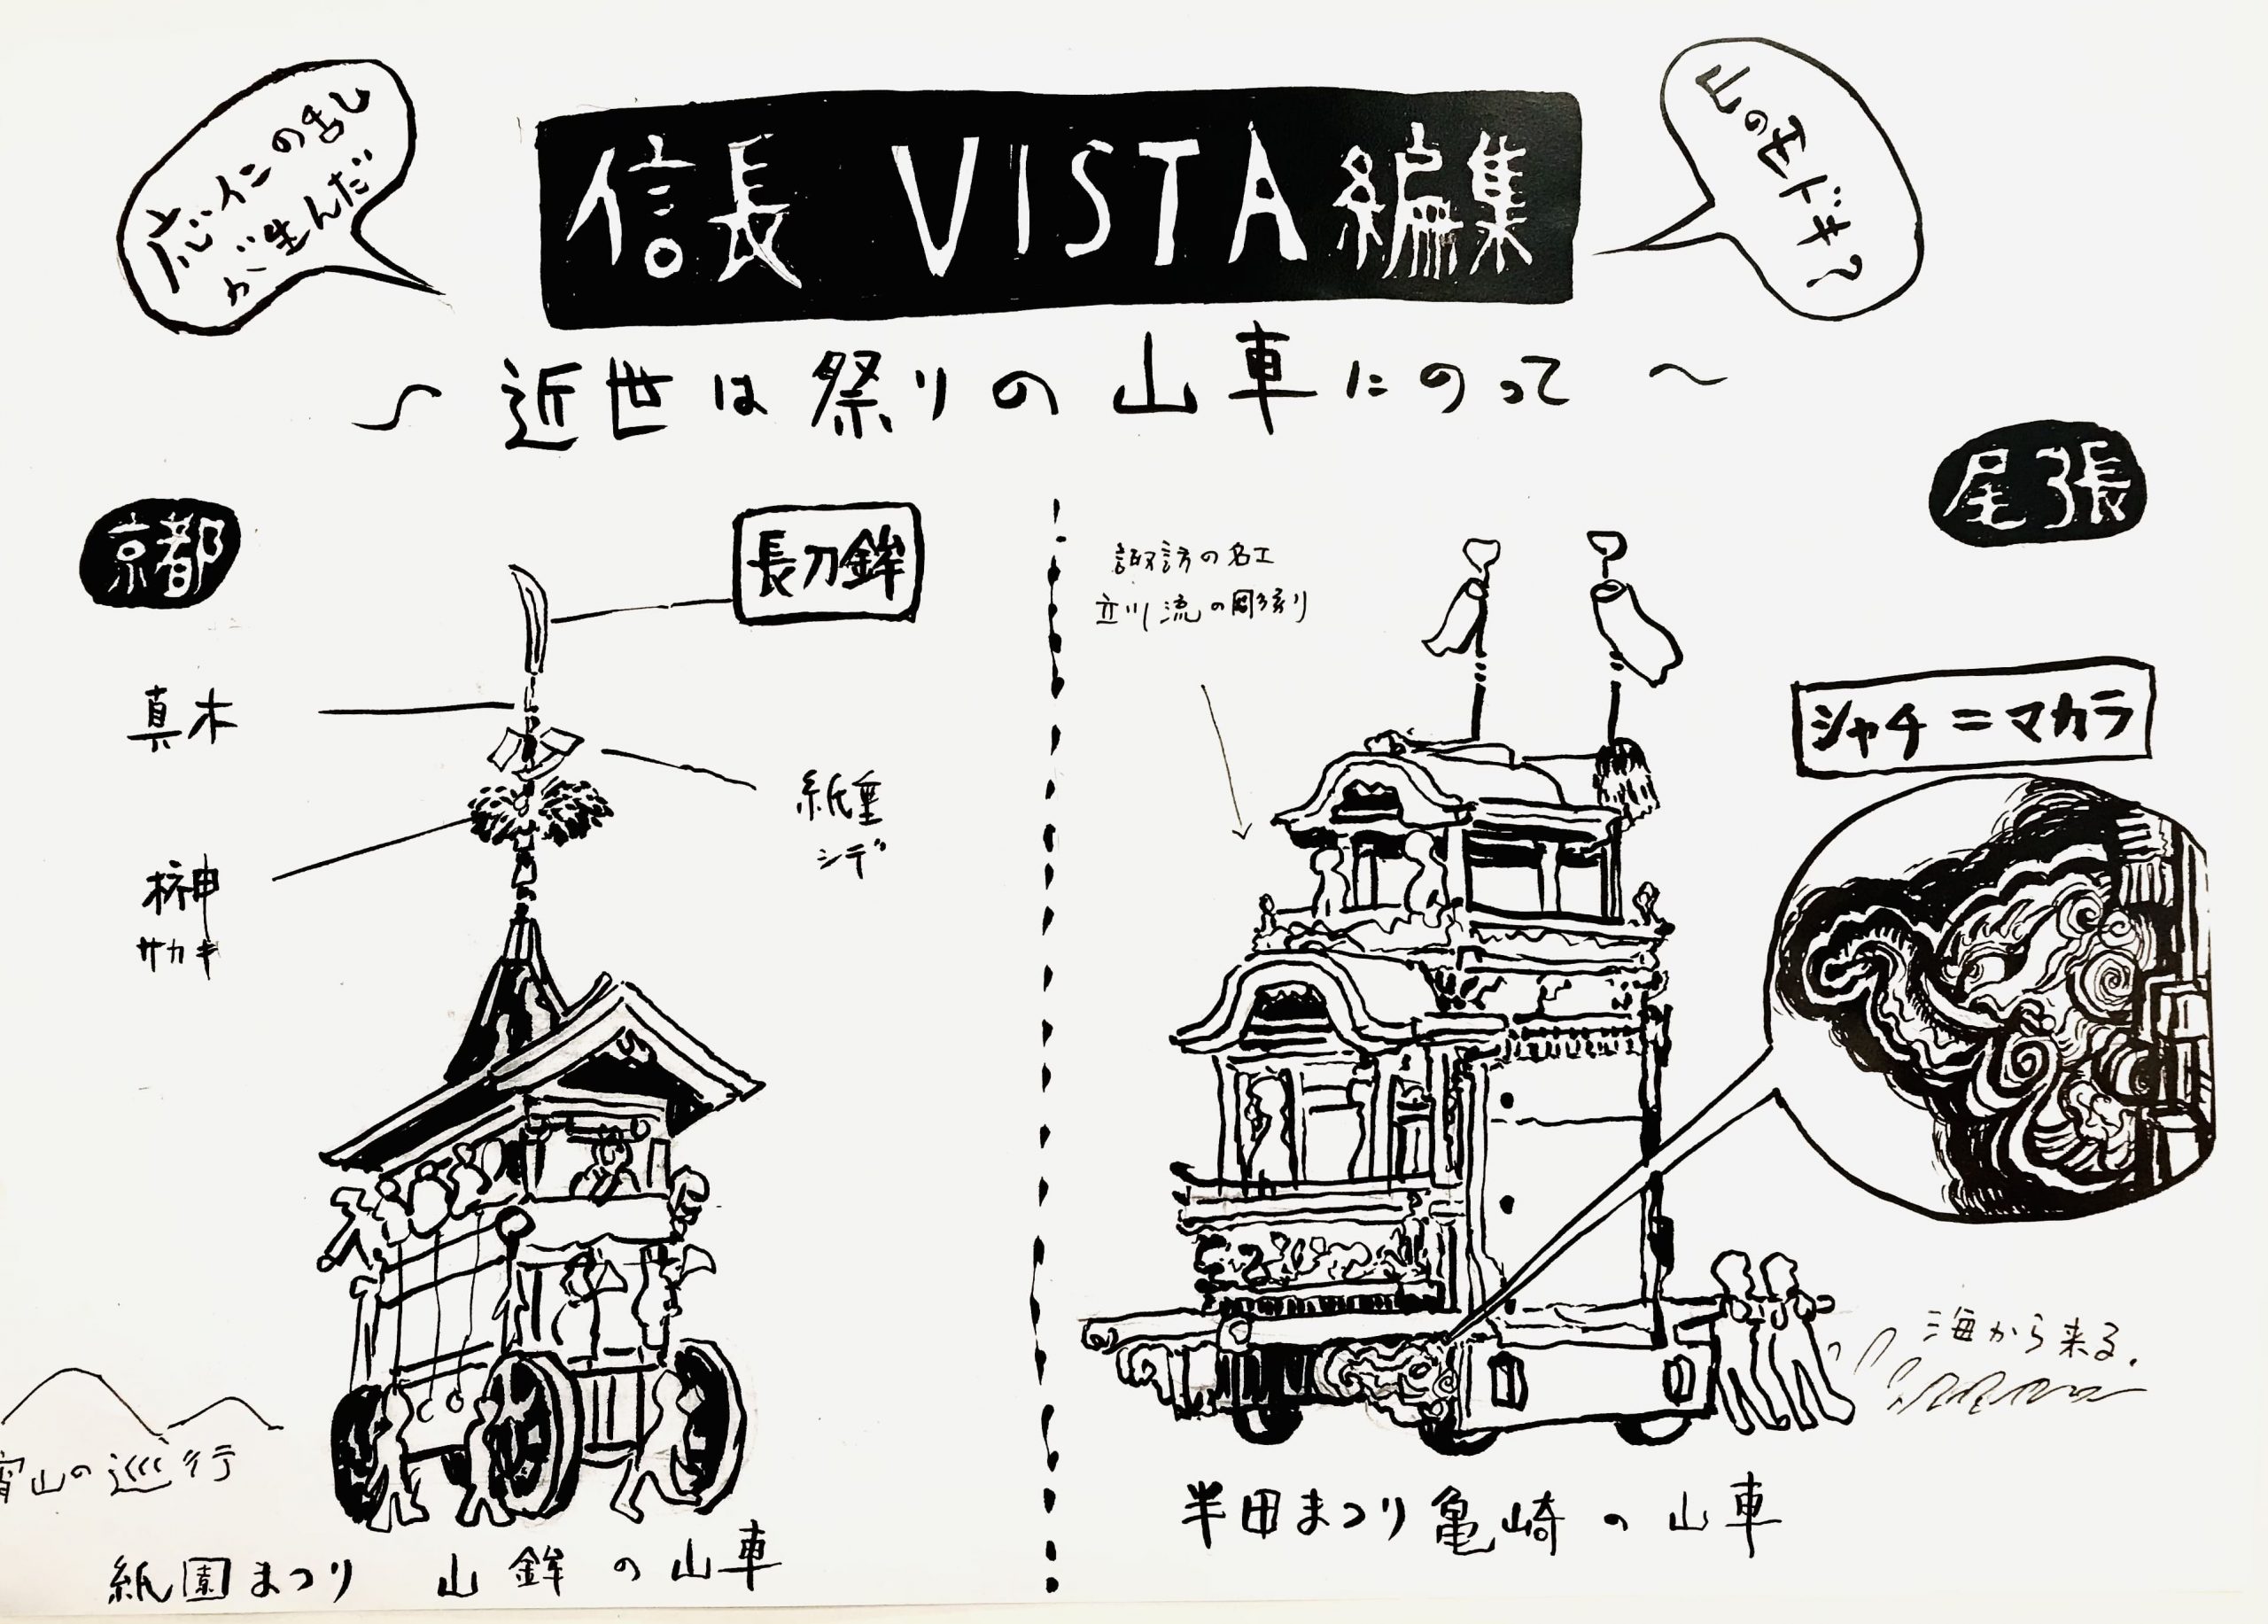 応仁の乱
が生んだ
信長 VISTA編集
山のモドキ?
～近世は祭りの山車にのって～
京都
長刀鉾
真木
紙垂
シデ
榊
サカキ
宵山の巡行
紙園まつり 山鉾の山車
尾張
諏訪の名工
立川流の彫刻
シャチ=マカラ
海から来る.
半田まつり亀崎の山車